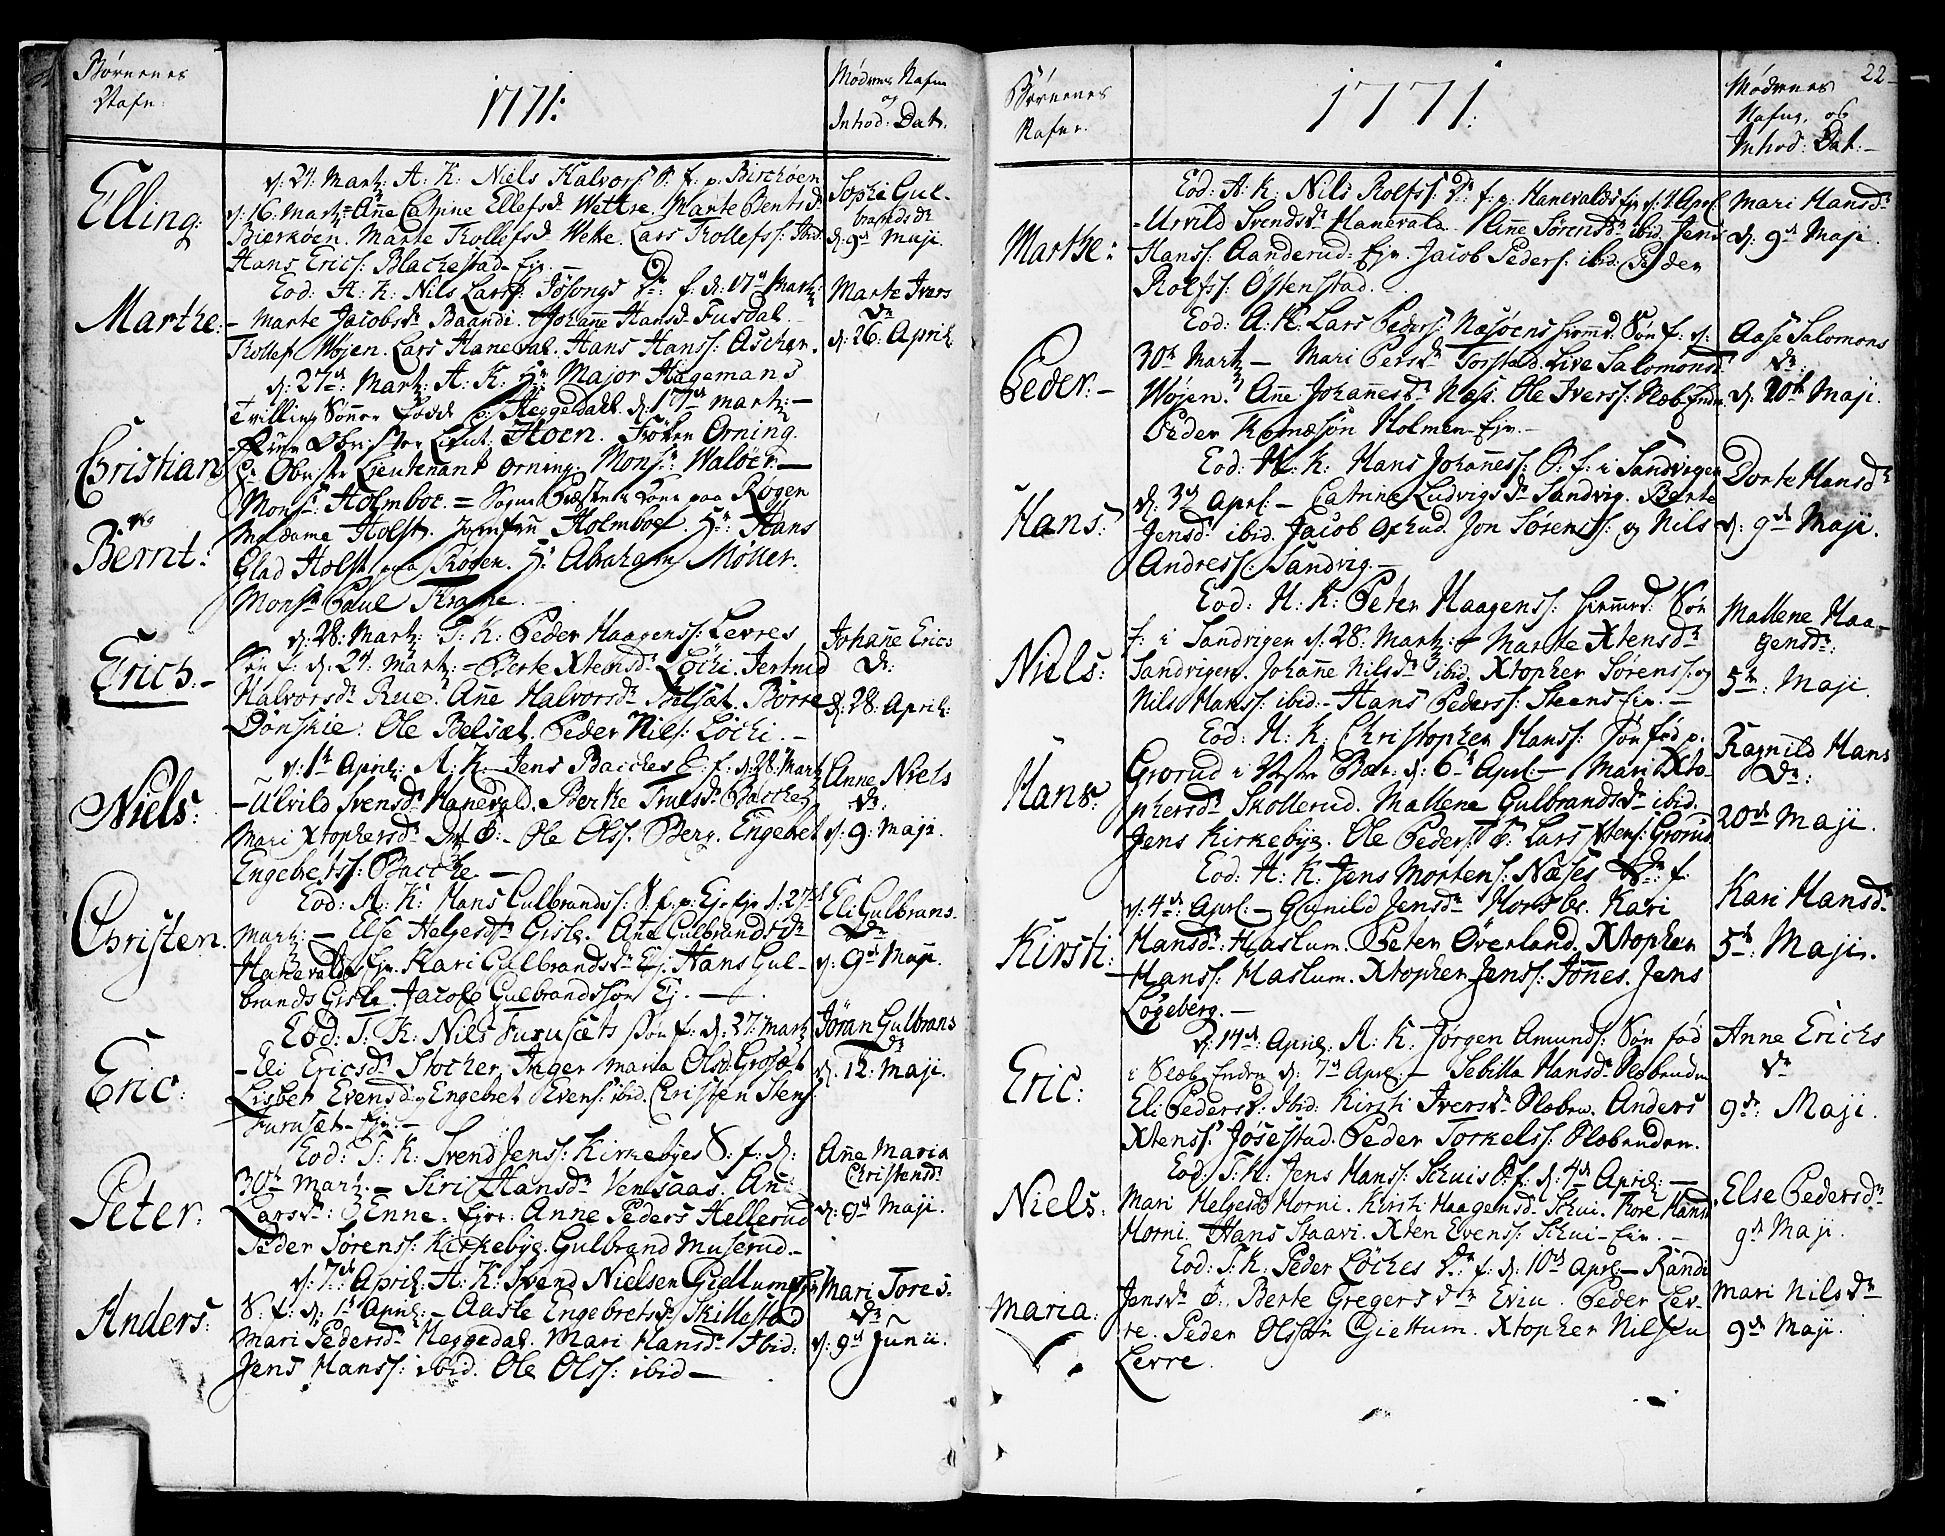 Børnenes
Nafn:
1771:
Mødrenes Nafne
og
Introd: Dat:
Elling:
d: 24: Martz: A: K: Niels Halvors: S: f: p. Birchøen
d: 16: Martz = Añe Catrine Ellefsdr Wettre. Marte Bentsdr
Bierkøen. Marte Tollefsdr Wette. Lars Tollefss: Ibid
Hans Erics: Blachestad-Eje.
Sophi Gul-
brandsdr
d: 9de Maji.
Marthe:
Eod: A: K: Nils Larss: Jøsongs Dr: f: d: 17de Martz:
- Marte Jacobsdr Baandi. Johañe Hansdr Fusdal.
Tollef Wøjen. Lars Haneval. Hans Hanss: Ascher.
Marte Ivers
Dr
d: 26: April:
Christian
og
Bernt:
d: 27de: Martz: A: K: Hr: Major Hagemans
Tvilling Sønner fødd p: Heggedahl d: 17de Martz: -
Obrister Lieut: Hoen. Frøken Orning.
Hr Obrister Lieutenant Orning. Monsr: Waløer.
Monsr: Holmboe. = Kone paa Røgen
Madame Holst. Jomfru Holmboe. Hr: Hans
Glad Holst paa Røgen. Hr: Abraham Møller.
Monsr Paul Krame.
Erich.-
d: 28: Martz: T: K: Peder Haagenss: Levres
Søn f: d: 24: Martz: - Berte Xtensdr Løchi. Jertrud
Halvorsdr Rue. Añe Halvorsdr Belsæt. Børre
Dønskie. Ole Belsæt. Peder Nils: Løchi. -
Johañe Erics
Dr:
d: 28: April:
Niels:
d: 1te April: A: K: Jens Bacches S: f: d: 28: Martz
- Ulvild Svensdr Hanevald. Berthe Truelsdr Bacche
Mari Xtophersdr Ole Olss: Berg. Engebret
Engebretss: Bacche -
Anne Niels
Dr:
d: 9: Maji.
Christen.
Eod: A: K: Hans Gulbrandss: S: f: p: Eje d: 27de
Martz: - Else Helgesdr Gisle. Añe Gulbrandsdr
Hanevalds Eje. Kari Gulbrandsdr Ej. Hans Gul-
brands Gisle. Jacob Gulbrandssøn Ej. -
Eli Gulbrans.
Dr
d: 9de Maji.
Eric:
Eod: T: K: Nils Furusæts søn f: d: 27: Martz
- Eli Ericsdr Stocher. Inger Maria Olsdr Grosæt
Lisbet Evensdr Engebret Evens: ibid. Christen Stens:
Furusæt-Eje. -
Jøran Gulbrans
dr
d: 12: Maji.
Peter.
Eod: T: K: Svend Jenss: Kirkebyes S: f: d:
30te Martz. - Siri Hansdr Vensaas. Añe
Larsdr: Enne. Eje: Anne Peders Hellerud
Peder Sørenss: Kirkebye. Gulbrand Muserud. -
Añe Maria
Christensdr
d: 9de Maji.
Anders:
d: 7de April: A: K: Svend Nielsen Giellum
S: f: d: 1te April: - Aasle Engebretsdr Skillestad
Mari Pedersdr Heggedal. Mari Hansdr Ibid:
Jens Hanss: ibid. Ole Olss: ibid -
Mari Tores:
Dr
d: 9de Junii.
22-
Børnenes
Nafne.
1771:
Mødrenes
Nafne, og
Introd: Dat: -
Marthe:
Eod: A: K: Nils Rolfss: Dr: f: p: Hanevalds Eje d: 1 Apr
- Urvild Svendsdr Hanevala. Añe Sørensdr ibid. Jens
Hanss: Aanderud: Eje. Jacob Peders: ibid. Peder
Rolfss: Østenstad.
Mari Hansdr
d: 9de Maji.
Peder: -
Eod: A: K: Lars Peders: Næsøens Søn f: d:
30te Martz - Mari Persdr Torstad. Live Salomonsdr
Wøjen. Añe Johañesdr Næss. Ole Iverss: Slæbende
Peder Holmen-Eje. -
Aase Salomons
dr:
d: 20de Maji.
Hans:
Eod: H: K: Hans Johañess: S: f: i Sandvigen
d: 3de Aprl: - Catrine Ludvigsdr Sandvig. Berte
Jensdr ibid. Jacob Jon Sørenss: og Nils
Andress: Sandvig. -
Dorte Hansdr
d: 9de Maji.
Niels:
Eod: H: K: Peter Haagenss: Søn
f: i Sandvigen d: 28: Martz: - Marte Xtensdr
Sandvigen. Johañe Nilsdr ibid. Xtopher Sørenss: og
Nils Hanss: ibid. - Hans Pederss: Steens Eje. -
Mallene Haa-
gensdr:
5te: Maji.
Hans:
Eod: H: K: Christopher Hanss: Søn fød p.
Grorud i Vestre Bær: d: 6te Aprl. - Mari Xto-
phersdr Skollerud. Mallene Gulbrandsdr ibid.
Jens Kirkebye. Ole Peders: Lars Xtens: Grorud
Ragnild Hans
Dr:
20de Maji.
Kirsti:
Eod: H: K: Jens Mortens: Næses Dr: f:
d: 4de: Aprl. - Gunild Jensdr Horsbr. Kari
Hansdr: Haslum. Peter Øverland. Xtopher
Hanss: Haslum. Xtopher Jenss: Jones. Jens
Løgeberg. -
Kari Hansdr
5te: Maji.
Eric:
d: 14de April: A: K: Jørgen Amunds: Søn fød
i Slæbenden d: 7de Aprl: - Sebilla Hansdr Slæbenden
Eli Pedersdr: Ibid: Kirsti Iversdr Slæben. Anders
Xtenss: Jøsestad. Peder Torkelss: Slæbenden.
Anne Erichs
dr
9de: Maji.
Niels.
Eod: T: K: Jens Hanss: Schuis S: f: d: 4de April: -
Mari Helgesdr Horni. Kirsti Haagensdr Schui. Tore Hans
Horni. Hans Staavi. Xten Evenss: Schui-Eje. -
Else Pedersdr
9de Maji.
Maria:
Eod: T: K: Peder Løches Dr: f: d: 10de Aprl - Randi
Jensdr Berte Gregersdr Evju. Peder Lev-
re. Peder Olssøn Giettum. Xtopher Nilsen
Levre.
Mari Nilsdr
9de Maji.